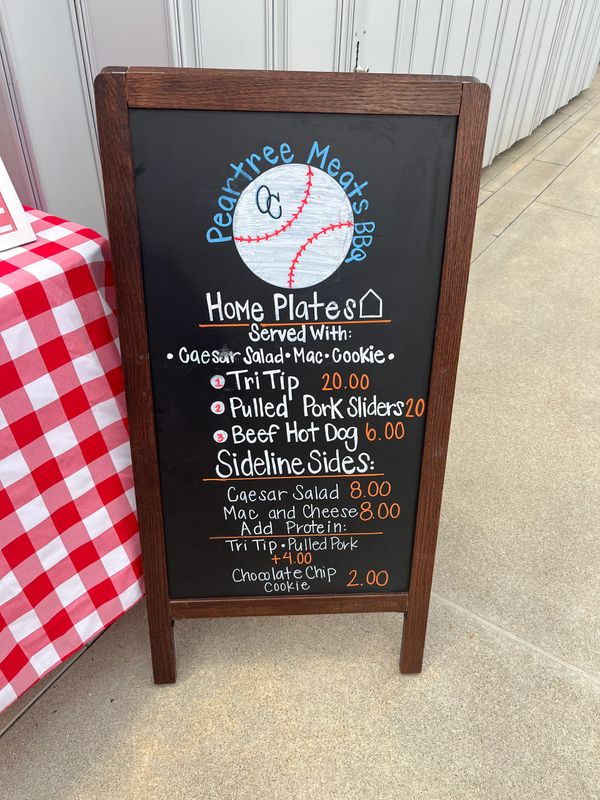 Peartree Meats BBQ
OC
Home Plates
Served With:
• Caesar Salad • Mac • Cookie •
1 Tri Tip 20.00
2 Pulled Pork Sliders 20
3 Beef Hot Dog 6.00
Sideline Sides:
Caesar Salad 8.00
Mac and Cheese 8.00
Add Protein:
Tri Tip • Pulled Pork
+4.00
Chocolate Chip
Cookie 2.00